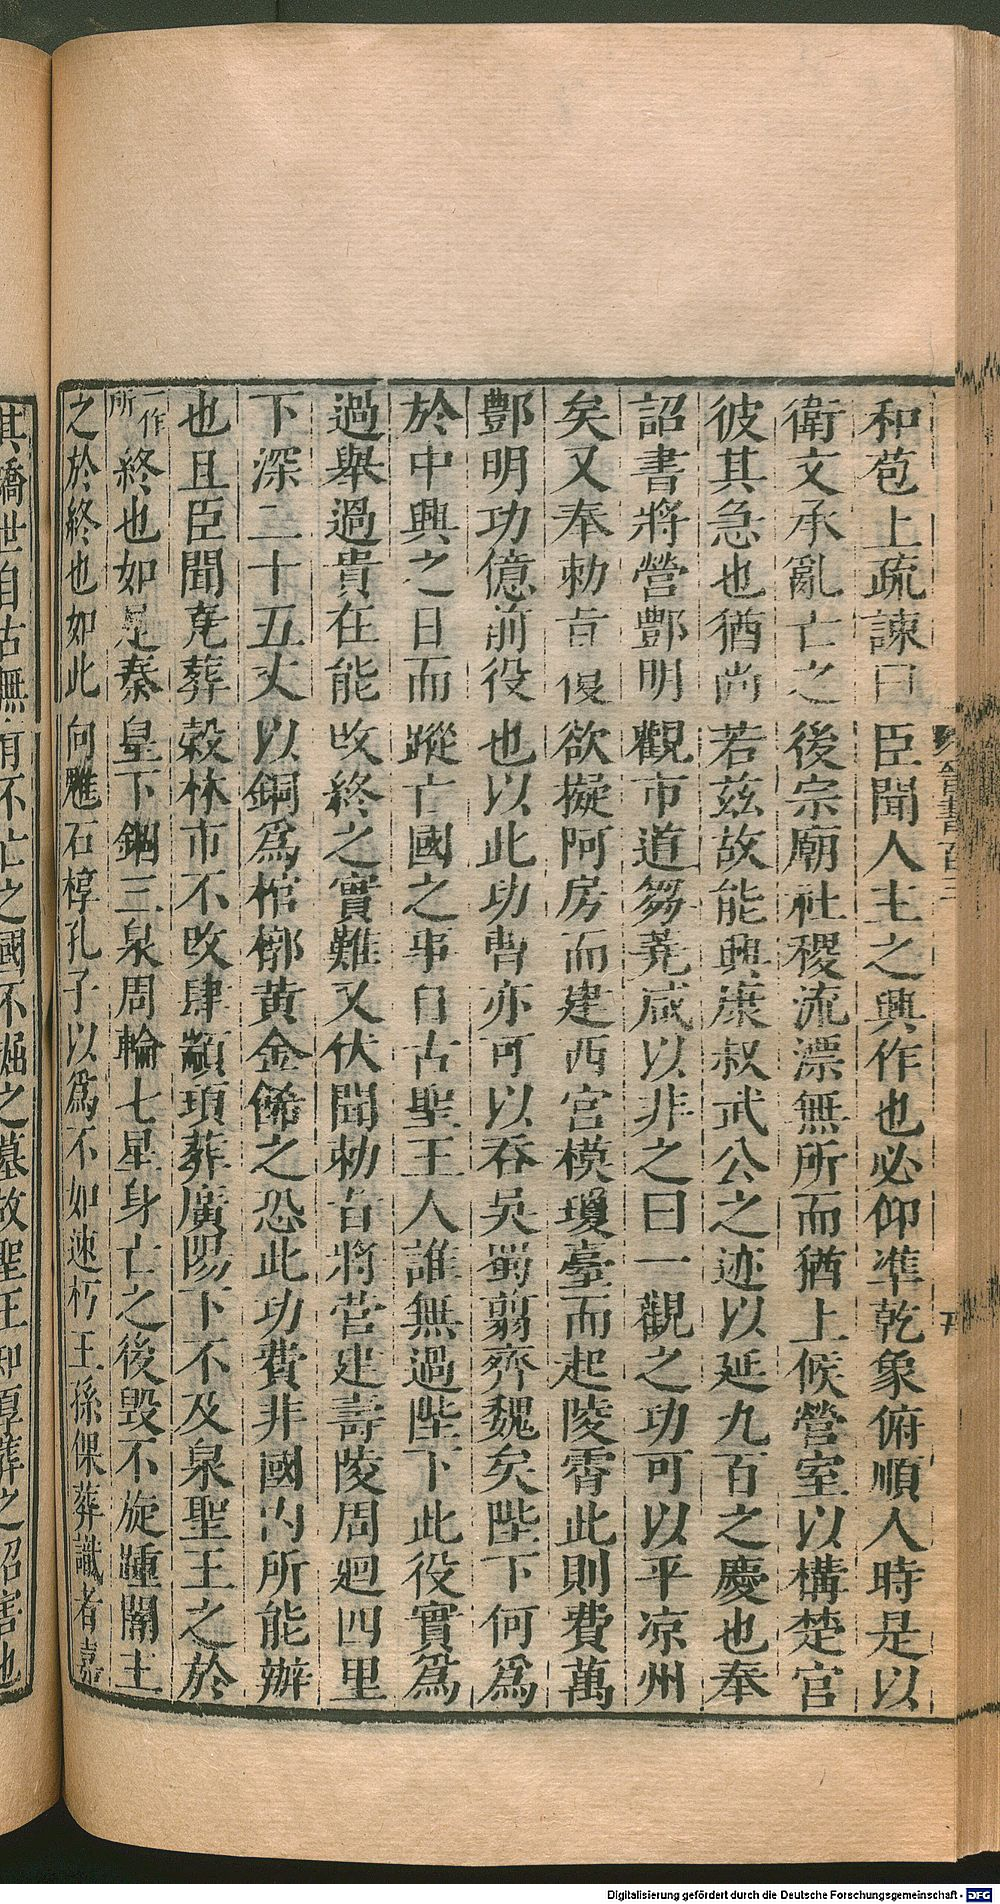 和苞上疏諫曰臣聞人主之興作也必仰準乾象俯順人時是以
衛文承亂亡之後宗廟社稷流漂無所而猶上候營室以構楚宮
彼其急也猶尚若茲故能興康叔武公之迹以延九百之慶也奉
詔書將營酆明觀市道芻蕘咸以非之曰一觀之功可以平凉州
矣又奉勑旨復欲擬阿房而建西宮模瓊臺而起陵霄此則費萬
酆明功億前役也以此功曹亦可以吞吳蜀翦齊魏矣陛下何爲
於中興之日而蹤亡國之事自古聖王人誰無過陛下此役實爲
過舉過貴在能改終之實難又伏聞勑旨將營建壽陵周迴四里
下深二十五丈以銅爲棺槨黄金飾之恐此功費非國内所能辦
也且臣聞堯葬穀林市不改肆顓頊葬廣陽下不及泉聖王之於
一作所終也如是秦皇下錮三泉周輪七星身亡之後毁不旋踵闇主
之於終也如此向魋石椁孔子以爲不如速朽王孫倮葬識者嘉
其矯世自古無有不亡之國不掘之墓故聖王知厚葬之招害也
晉書百三
Digitalisierung gefördert durch die Deutsche Forschungsgemeinschaft - DFG